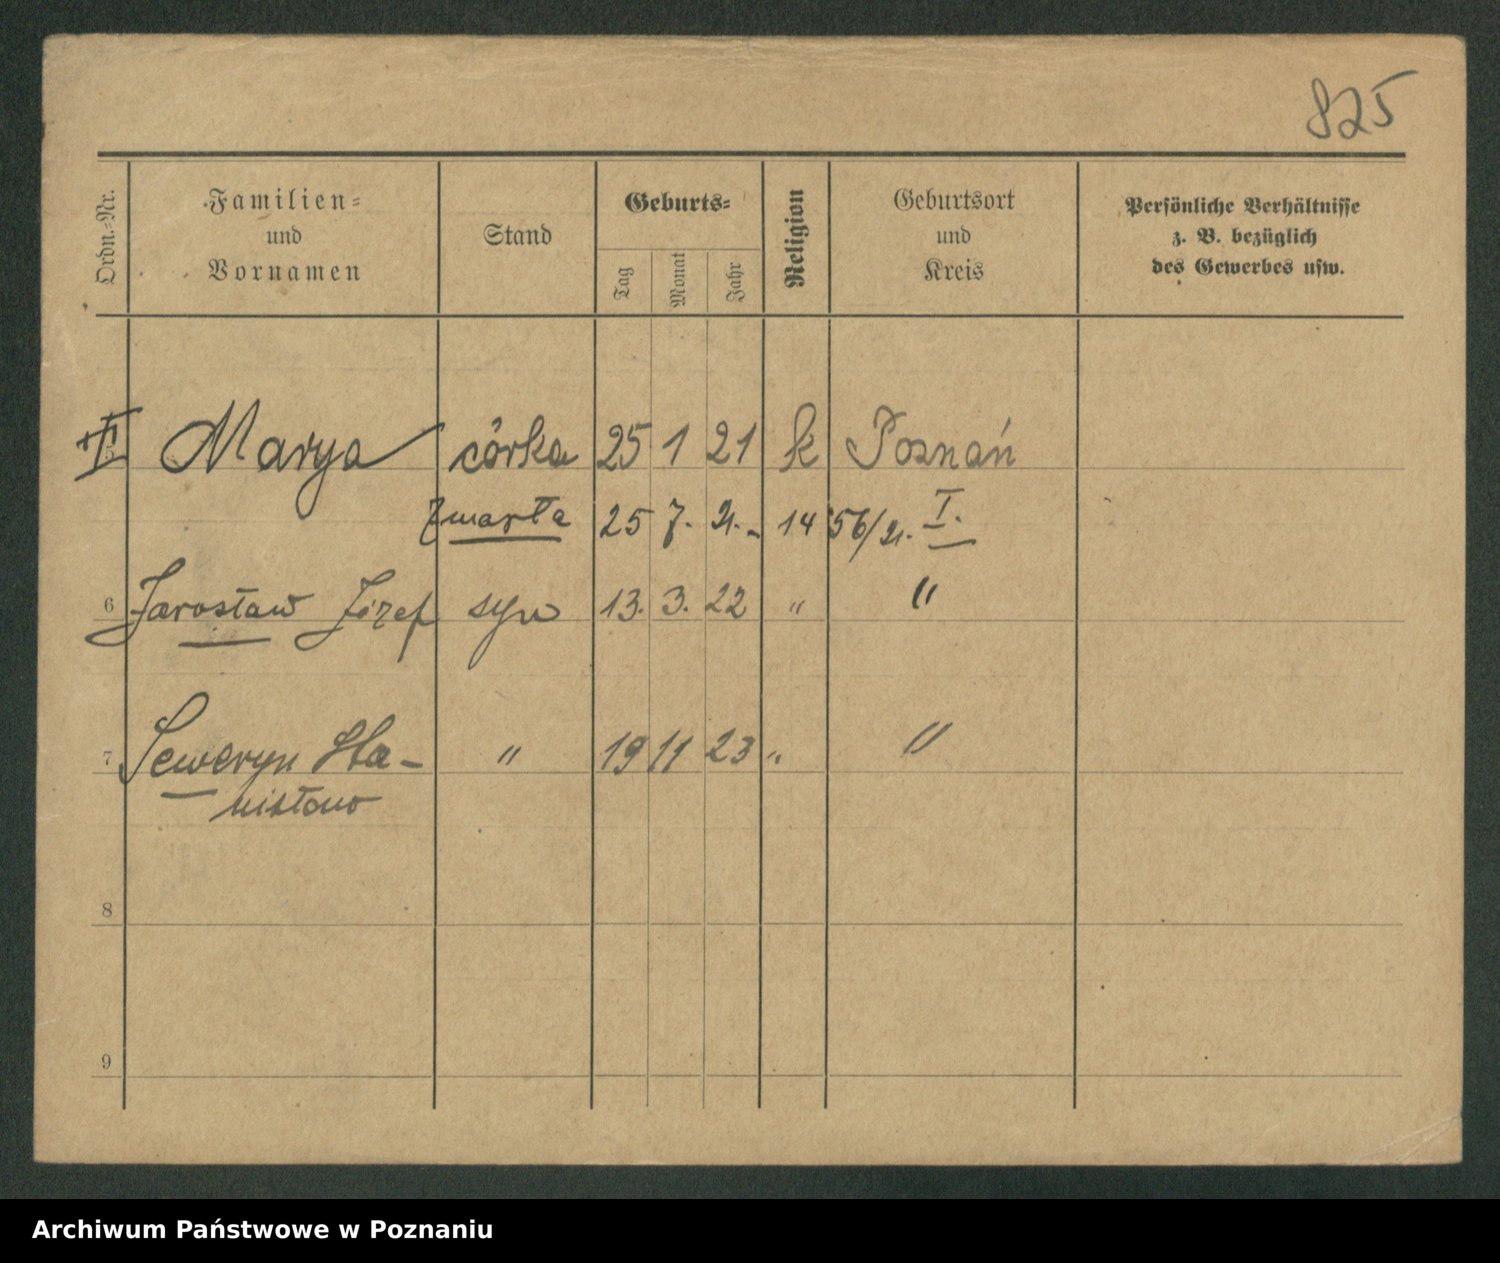 825
Ordn.-Nr. Familien- und Vornamen Stand Geburts- Tag Monat Jahr Religion Geburtsort und Kreis Persönliche Verhältnisse z. B. bezüglich des Gewerbes usw.
Marya córka 25 1 21 k Poznań
zmarła 25 7. 21. - 1456/21. I.
6 Jarosław Józef syn 13. 3. 22 " "
7 Seweryn Sta- " 19 11 23 " "
nisław
8
9
Archiwum Państwowe w Poznaniu